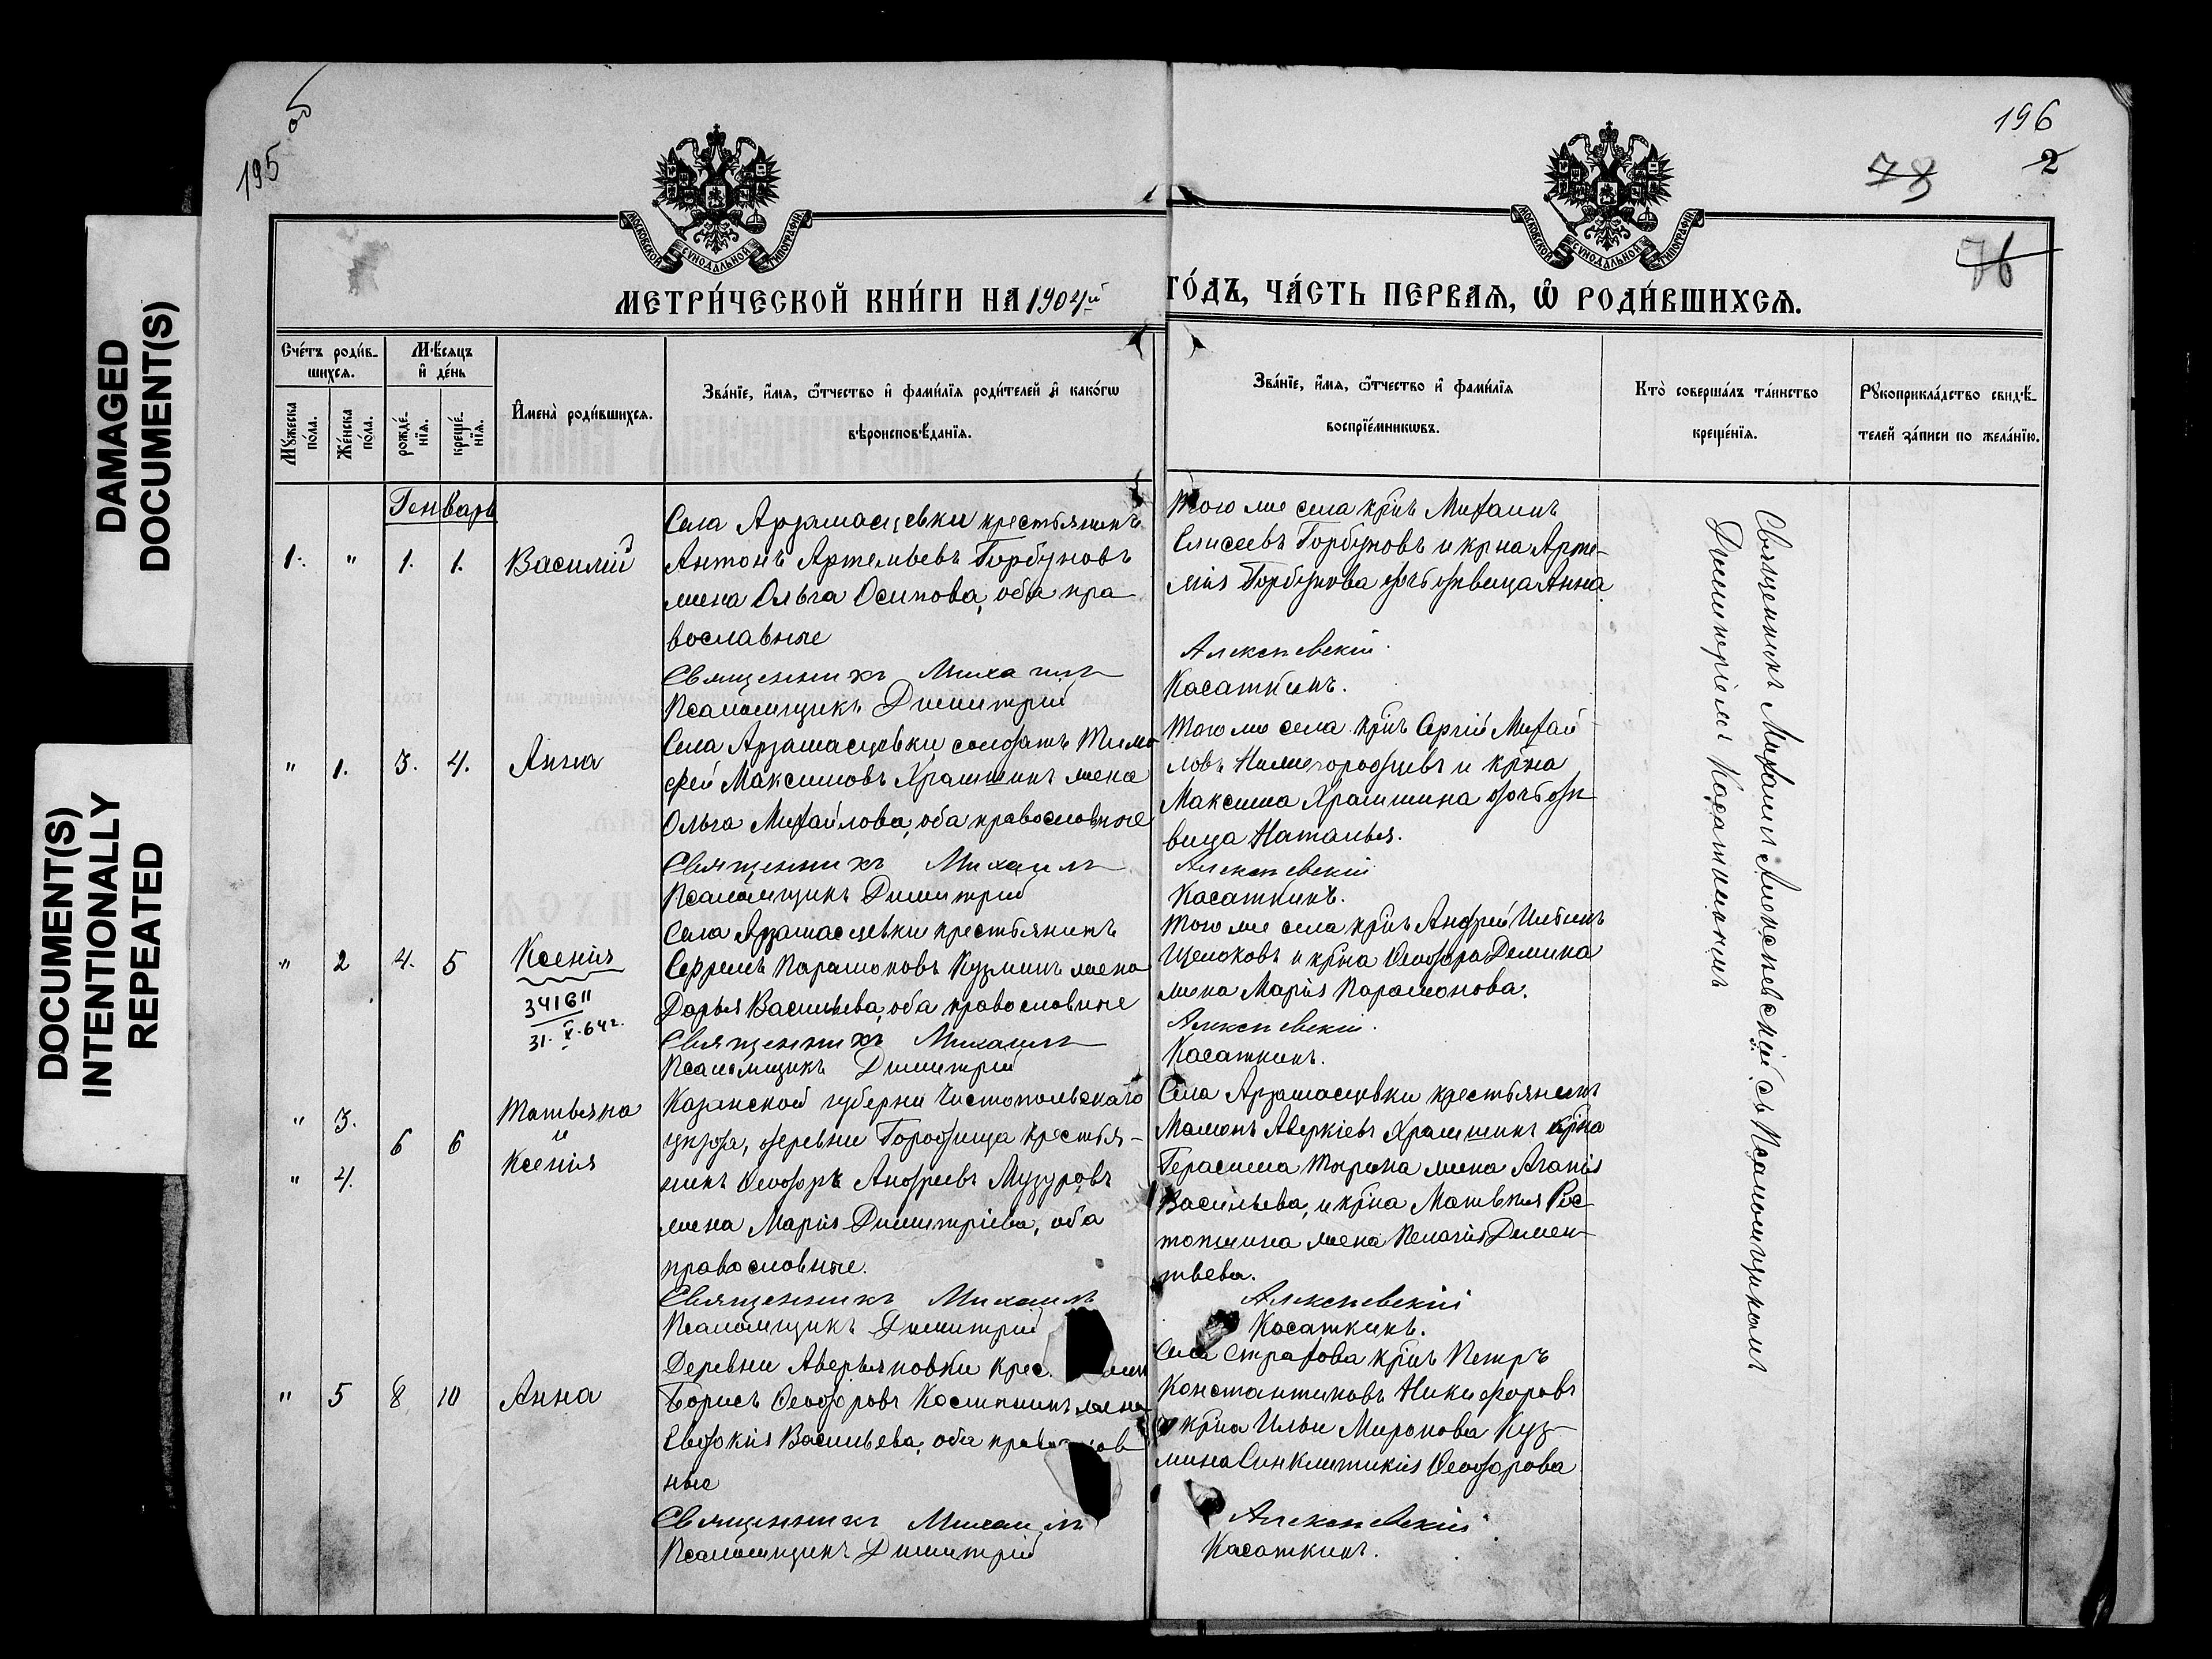 195 об
196
2
78
76
DAMAGED
DOCUMENT(S)
DOCUMENT(S)
INTENTIONALLY
REPEATED
МОСКОВСКОЙ СѴНОДАЛЬНОЙ ТИПОГРАФІИ
МОСКОВСКОЙ СѴНОДАЛЬНОЙ ТИПОГРАФІИ
МЕТРИ́ЧЕСКОЙ КНИ́ГИ НА 1904й
ГО́ДЪ, ЧА́СТЬ ПЕРВАѦ, Ѡ҆ РОДИ́ВШИХСѦ.
Сче́тъ роди́в-
шихсѧ.
Мꙋ́жеска
по́ла.
Же́нска
по́ла.
Мѣ́сѧцъ
и҆ де́нь
рожде́-
нїѧ.
креще́-
нїѧ.
И҆мена̀ роди́вшихсѧ.
Зва́нїе, и҆́мѧ, ѻ҆́тчество и҆ фами́лїѧ роди́телей и҆ како́гѡ
вѣроисповѣ́данїѧ.
Зва́нїе, и҆́мѧ, ѻ҆́тчество и҆ фами́лїѧ
воспрїе́мникѡвъ.
Кто̀ соверша́лъ та́инство
креще́нїѧ.
Рꙋкоприкла́дство свидѣ́-
телей за́писи по жела́нїю.
Генварь
1. " 1. 1. Василій
Села Арзамасцевки крестьянинъ
Антонъ Артемьевъ Горбуновъ
жена Ольга Осипова, оба пра-
вославные
Священникъ Михаилъ
Псаломщикъ Димитрій
Того же села крнъ Михаилъ
Елисеевъ Горбуновъ и кр на Арте-
мія Горбунова дочь девица Анна
Алексѣевскій.
Касаткинъ.
" 1. 3. 4. Анна
Села Арзамасцевки солдатъ Тимо-
фей Максимовъ Храмшинъ жена
Ольга Михайлова, оба православные
Священникъ Михаилъ
Псаломщикъ Димитрій
Того же села крнъ Сергій Михай
ловъ Нижегородцевъ и крна
Максима Храмшина дочь де-
вица Наталья.
Алексѣевскій
Касаткинъ.
" 2 4. 5 Ксенія
3416 II
31. X. 64 г.
Села Арзамасцевки крестьянинъ
Ефремъ Парамоновъ Кузминъ жена
Дарья Васильева, оба православные
Священникъ Михаилъ
Псаломщикъ Димитрій
Того же села крнъ Андрей
Щелоковъ и крна Ѳеодора Демина
жена Марія Парамонова.
Алексѣевскій.
Касаткинъ.
" 3. Татьяна
6 6 и
" 4. Ксенія
Казанской губерни Чистопольскаго
уѣзда, деревни Городища крестья-
нинъ Ѳеодоръ Андреевъ Музуровъ
жена Марія Димитріева, оба
православные.
Священникъ Михаилъ
Псаломщикъ Димитрій
Села Арзамасцевки крестьянинъ
Мамонъ Аверкіевъ Храмшинъ крна
Герасима жена Агапія
Васильева, и крна Матвея Рос
топшина жена Пелагія Демен-
тьева.
Алексѣевскій
Касаткинъ.
" 5 8 10 Анна
Деревни Аверьяновки крес
Борисъ Ѳеодоровъ Костинъ жена
Евдокія Васильева, оба православ
ные
Священникъ Михаилъ
Псаломщикъ Димитрій
Села Страхова крнъ Петръ
Константиновъ Никифоровъ
и крна Ильи Миронова Куз-
мина Синклитикія Ѳеодорова
Алексѣевскій
Касаткинъ.
Священникъ Михаилъ Алексѣевскій съ Псаломщикомъ
Димитріемъ Касаткинымъ